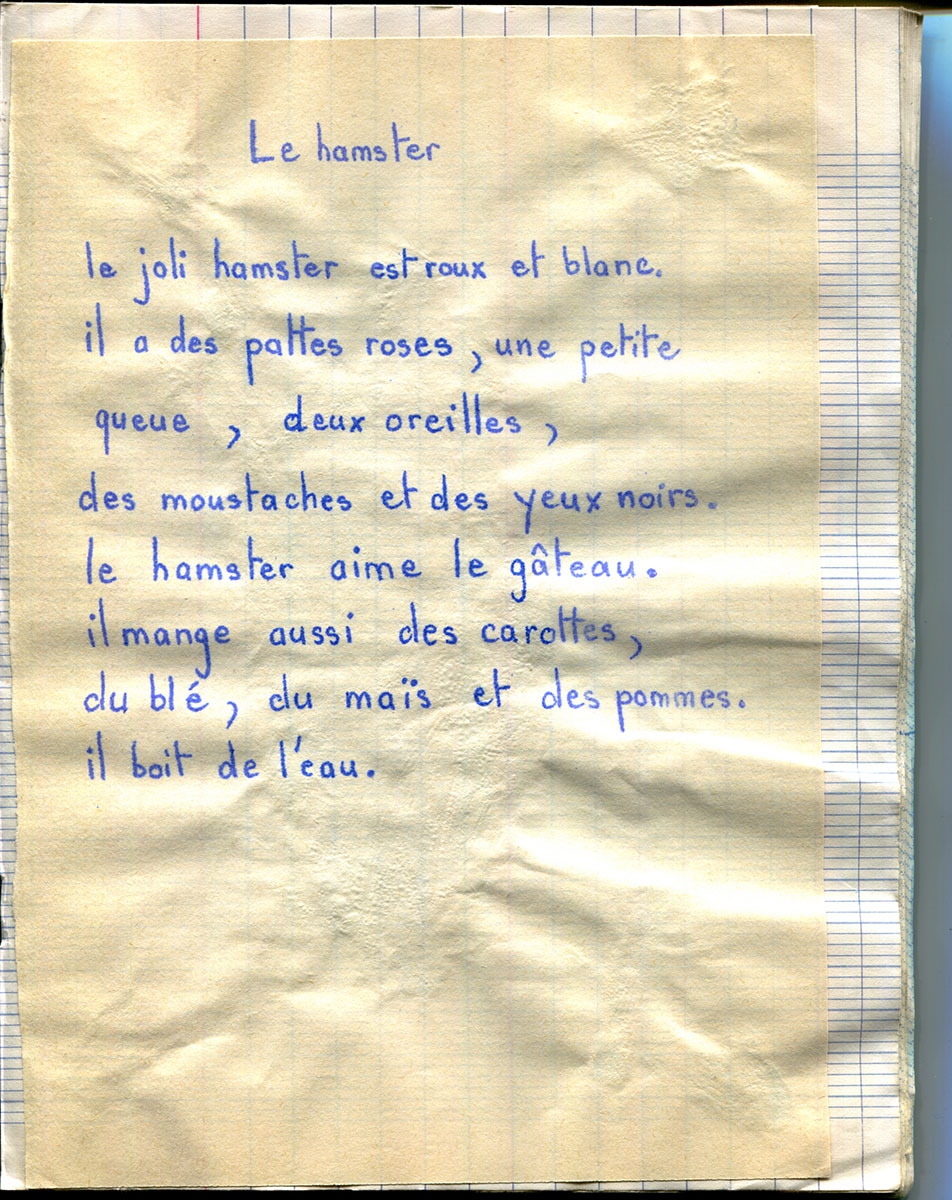 Le hamster
le joli hamster est roux et blanc.
il a des pattes roses, une petite
queue, deux oreilles,
des moustaches et des yeux noirs.
le hamster aime le gâteau.
il mange aussi des carottes,
du blé, du maïs et des pommes.
il boit de l'eau.